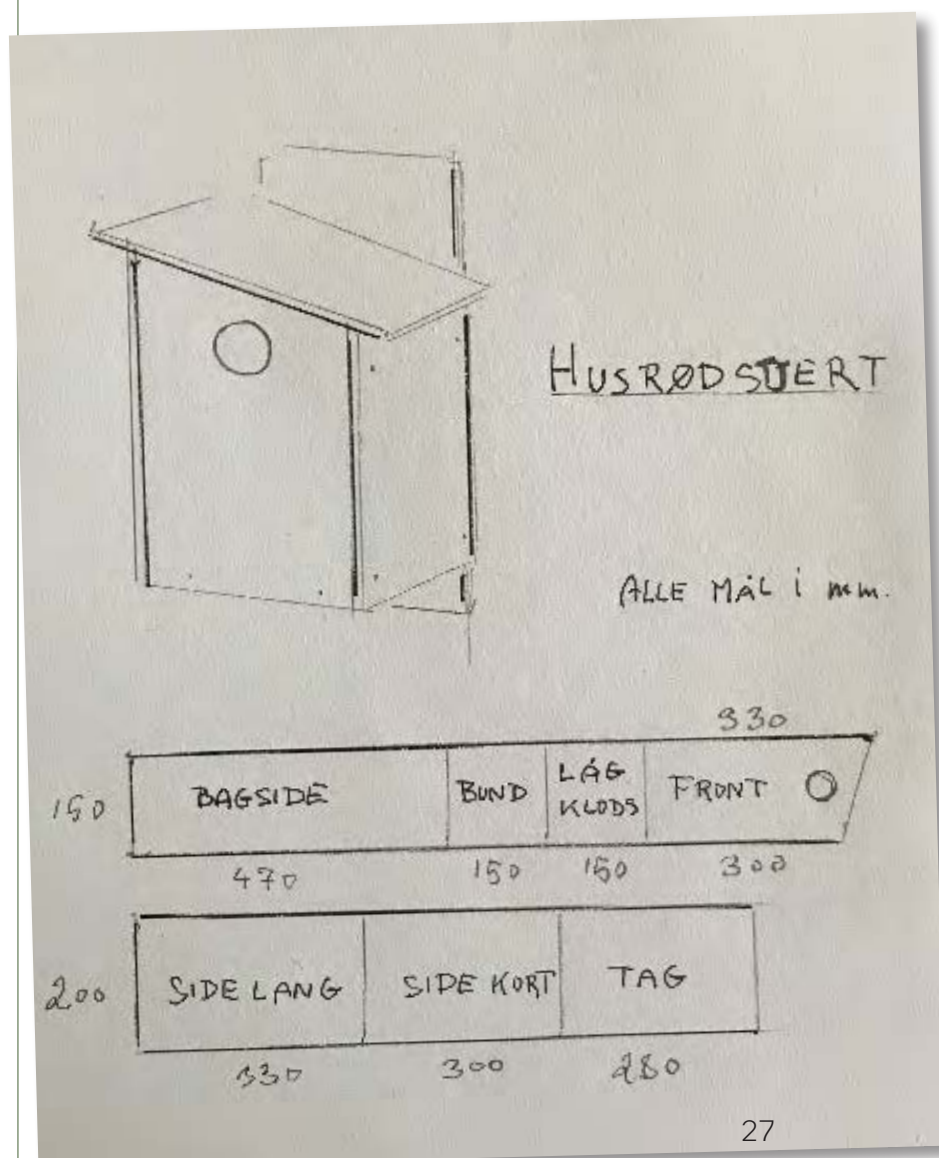 HUSRØDSTJERT
ALLE MÅL i mm.
330
150
BAGSIDE
BUND
LÅG
KLODS
FRONT
470
150
150
300
200
SIDE LANG
SIDE KORT
TAG
330
300
280
27